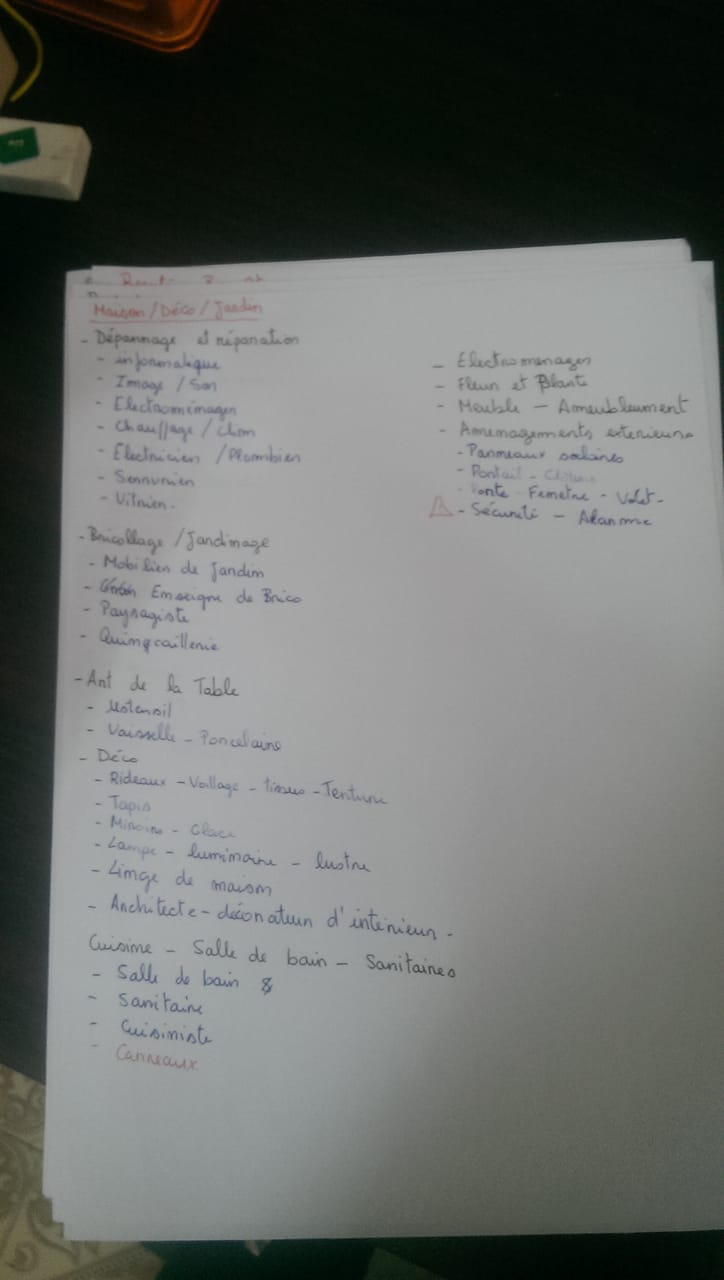 Maison / Déco / Jardin
- Dépannage et réparation
- informatique
- Image / Son
- Electroménager
- Chauffage / Clim
- Electricien / Plombier
- Serrurier
- Vitrier.
- Bricollage / Jardinage
- Mobilier de Jardin
- Enseigne de Brico
- Paysagiste
- Quinqcaillerie
- Art de la Table
- Ustensil
- Vaisselle - Porcelaine
- Déco
- Rideaux - Voillage - tissus - Tenture
- Tapis
- Miroirs - Glace
- Lampe - luminaire - lustre
- Linge de maison
- Architecte - décorateur d'interieur -
Cuisine - Salle de bain - Sanitaires
- Salle de bain
- Sanitaire
- Cuisiniste
- Carreaux
- Electromenager
- Fleur et Plante
- Meuble - Ameubleument
- Amenagements exterieurs
- Panneaux solaires
- Portail - Clôture
- Porte - Fenetre - Volet -
- Sécurité - Alarme